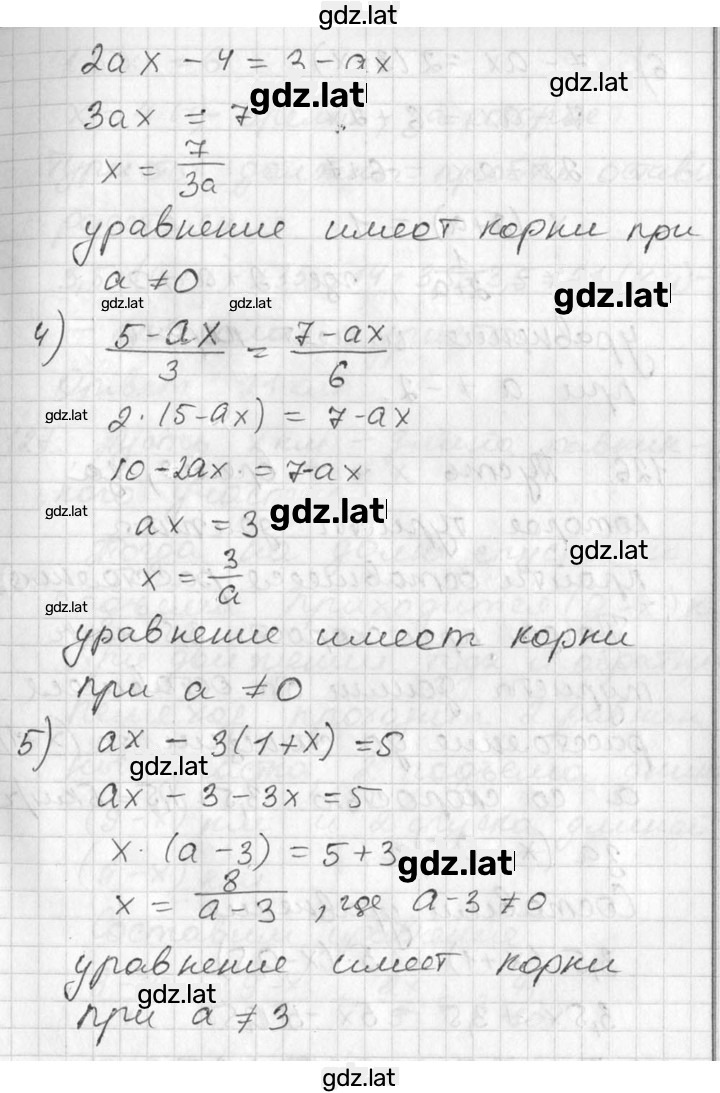 gdz.lat
2ax - 4 = 3 - ax
gdz.lat
gdz.lat
3ax = 7
x = 7/3a
уравнение имеет корни при
a ≠ 0
gdz.lat
gdz.lat gdz.lat
4) (5-ax)/3 = (7-ax)/6
gdz.lat 2·(5-ax) = 7-ax
10-2ax = 7-ax
gdz.lat ax = 3 gdz.lat
gdz.lat
x = 3/a
gdz.lat
уравнение имеет корни
при a ≠ 0
5) ax - 3(1+x) = 5
gdz.lat
ax - 3 - 3x = 5
x·(a-3) = 5+3 gdz.lat
x = 8/(a-3), где a-3 ≠ 0
уравнение имеет корни
gdz.lat
при a ≠ 3
gdz.lat